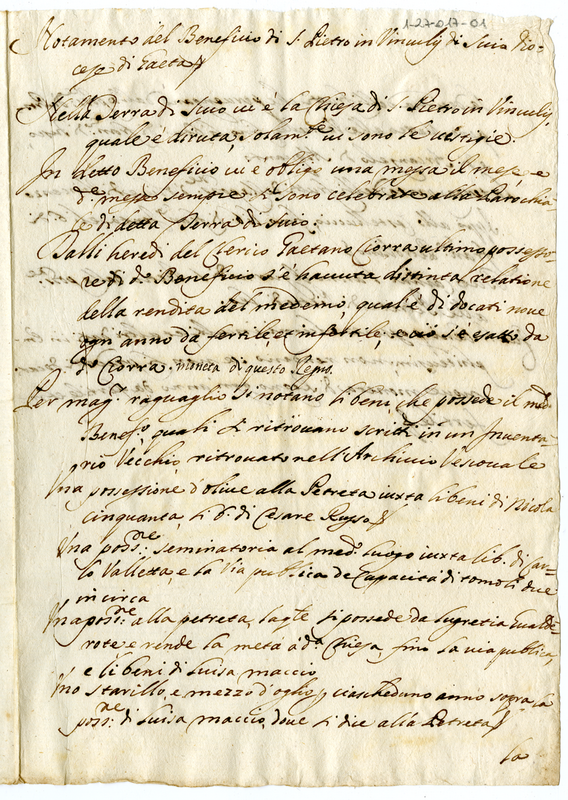 1-27-017-01
Notamento del Beneficio di S. Pietro in Vinculij di Suio Dio-
cese di Gaeta
Nella Terra di Suio vi è la Chiesa di S. Pietro in Vinculij,
quale è diruta, solam.te vi sono le vestigie.
In detto Beneficio vi è obligo una messa il mese, e
d.e messe sempre si sono celebrate alla Parochia-
le di detta Terra di Suio.
Dalli heredi del Clerico Gaetano Ciorra ultimo possesso-
re di d.o Beneficio s'è havuta distinta relatione
della rendita del medemo, qual'è di docati nove
ogn'anno da fertile et infertile, e ciò s'è esatto da
d.o Ciorra moneta di questo Regno.
Per mag.r raguaglio si notano li beni, che possede il med.o
Benef.o, quali si ritrovano scritti in un Inventa-
rio Vecchio ritrovato nell'Archivio Vescovale
Una possessione d'olive alla Petreta iuxta li beni di Nicola
Cinquanta, li d. di Cesare Russo
Una poss.ne seminatoria al med.o luogo iuxta li b. di Car-
lo Valletta, e la Via publica de capacità di tomoli due
in circa
Una poss.ne alla petreta, la q.le si possede da Lugretia
e rende la metà a d.a Chiesa, fino la via publica,
e li beni di Luisa maccio
Uno starillo, e mezzo d'oglio ciascheduno anno sopra la
poss.ne di Luisa maccio, dove si dice alla Petreta
La